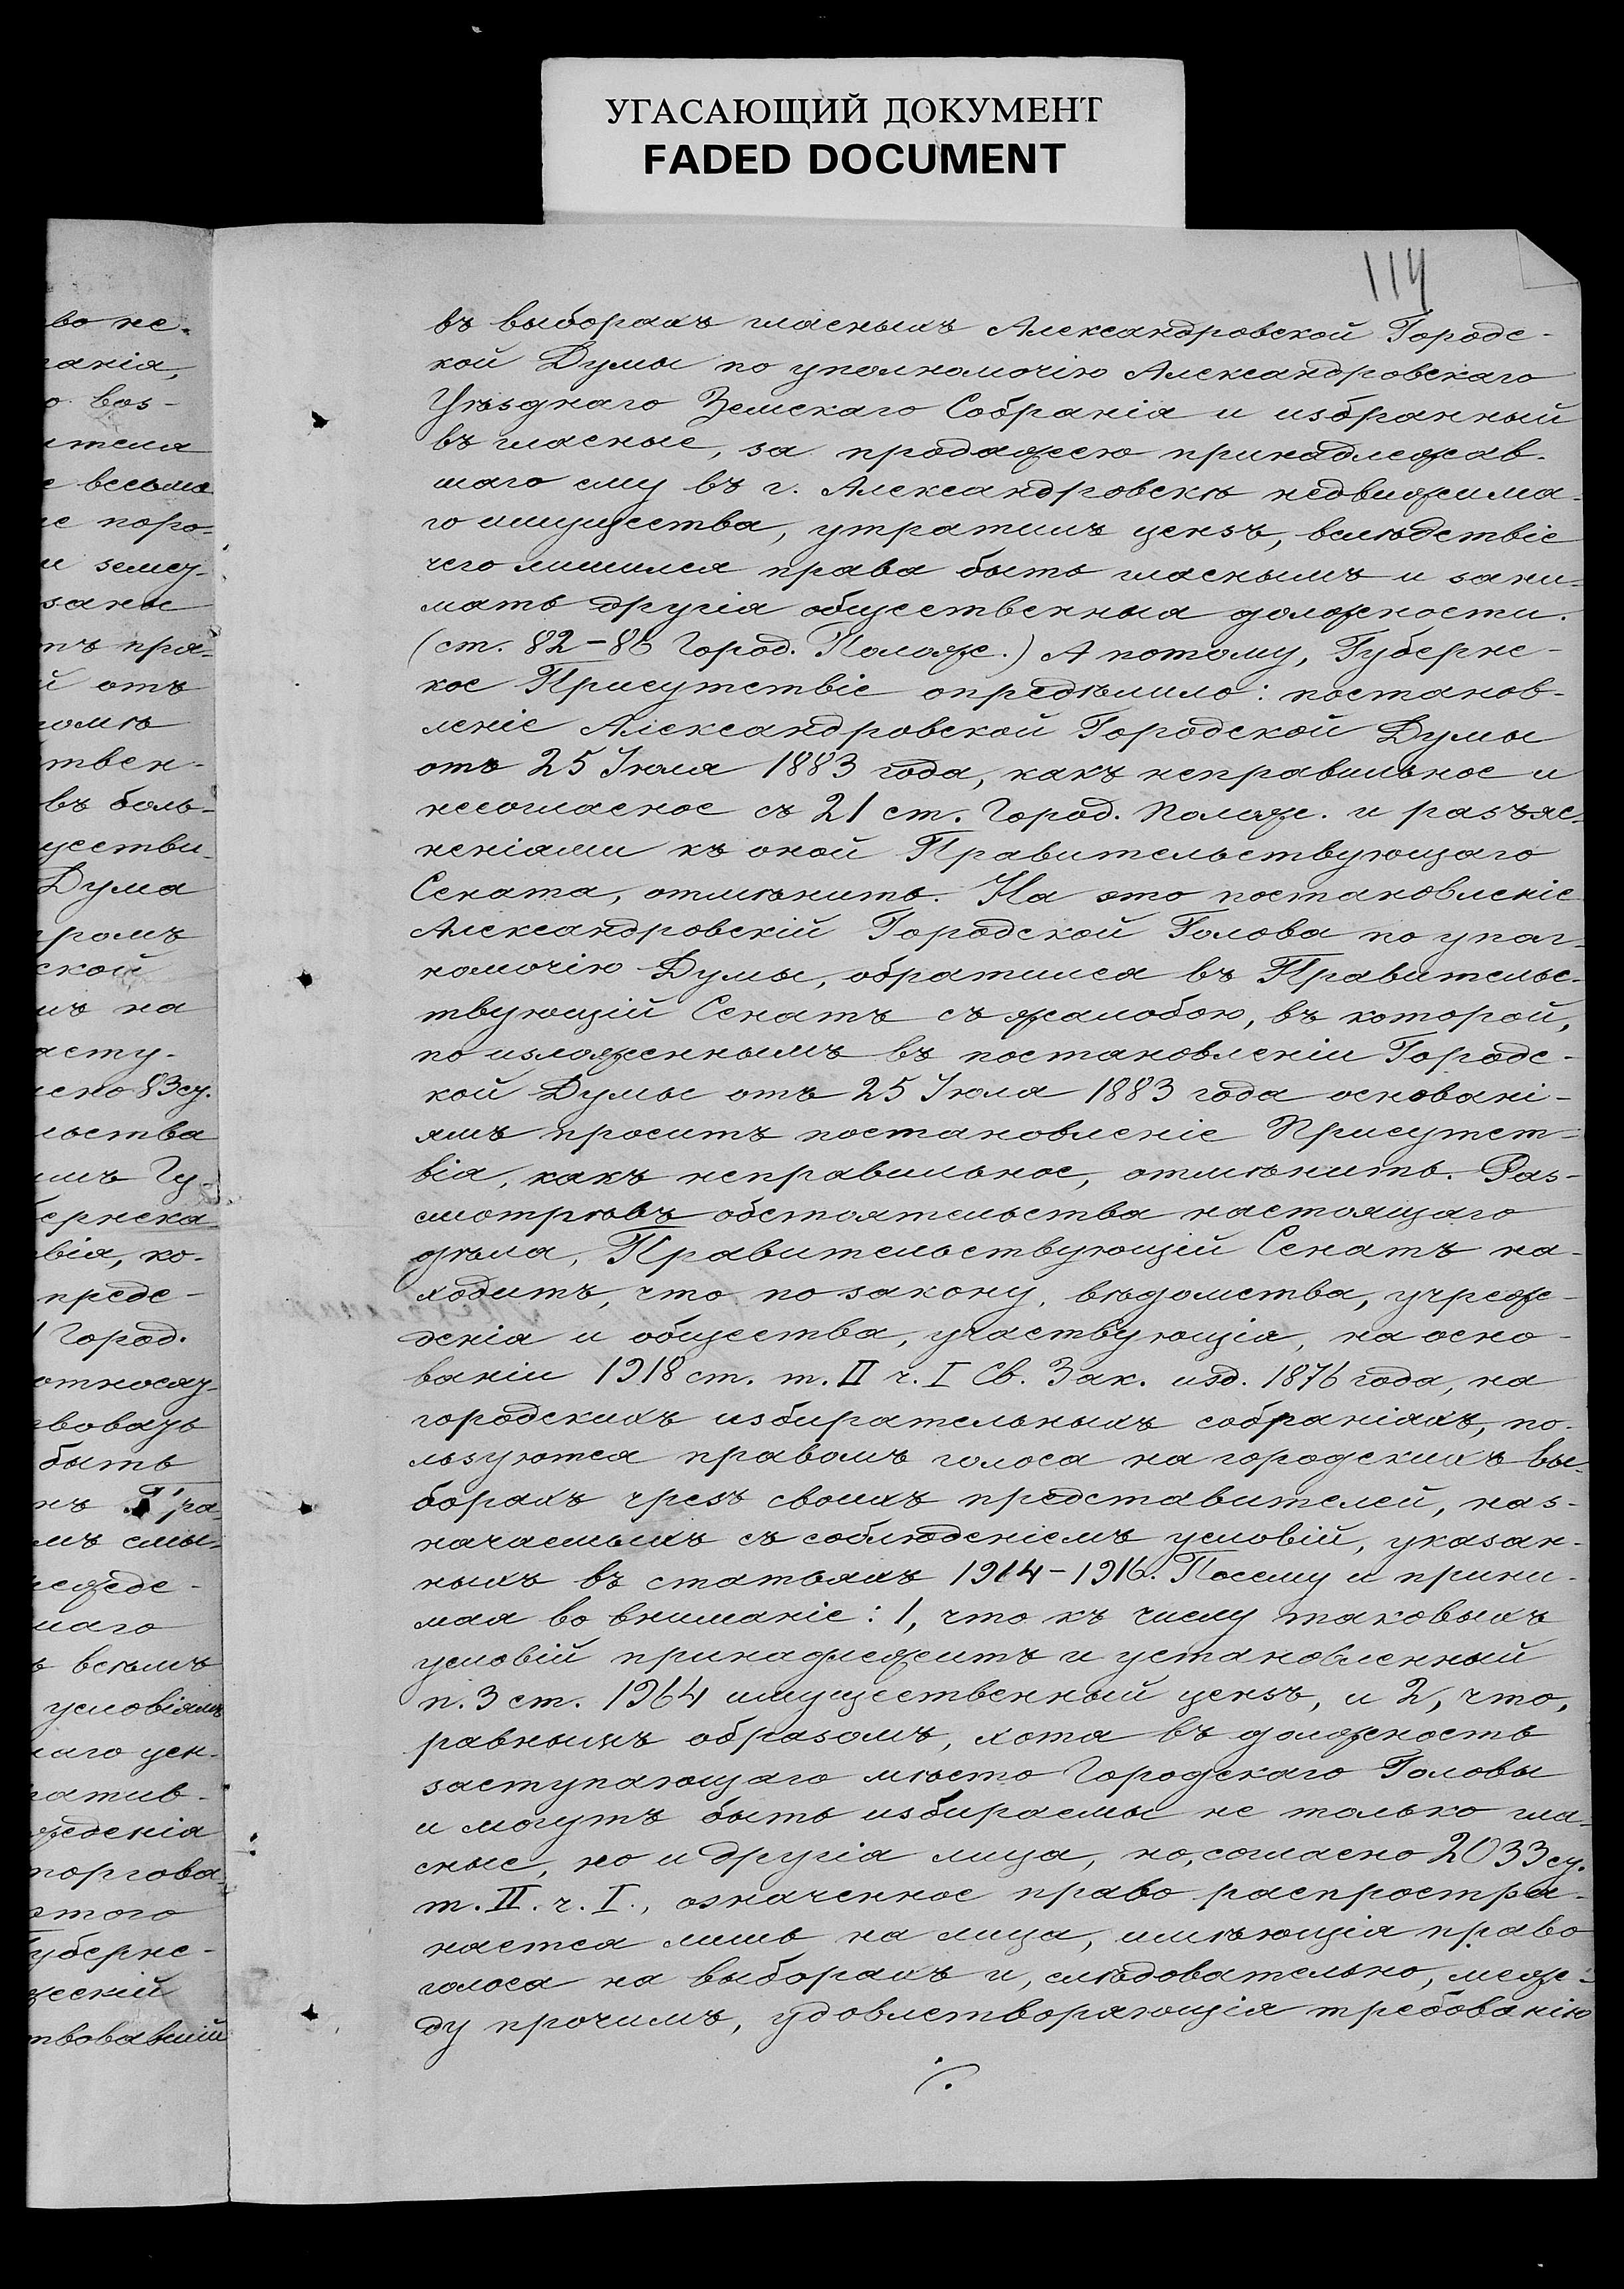 УГАСАЮЩИЙ ДОКУМЕНТ
FADED DOCUMENT
114
въ выборахъ гласныхъ Александровской Городс-
кой Думы по уполномочію Александровскаго
Уѣзднаго Земскаго Собранія и избранный
въ гласные, за продажею принадлежав-
шаго ему въ г. Александровскѣ недвижима-
го имущества, утратилъ цензъ, вслѣдствіе
чего лишился права быть гласнымъ и зани-
мать другія общественныя должности.
(ст. 82-86 Город. Полож.) А потому, Губернс-
кое Присутствіе опредѣлило: постанов-
леніе Александровской Городской Думы
отъ 25 Іюля 1883 года, какъ неправильное и
несогласное съ 21 ст. Город. Полож. и разъяс-
неніями къ оной Правительствующаго
Сената, отмѣнить. На это постановленіе
Александровскій Городской Голова по упол-
номочію Думы, обратился въ Правительс-
твующій Сенатъ съ жалобою, въ которой,
по изложеннымъ въ постановленіи Городс-
кой Думы отъ 25 Іюля 1883 года основані-
ямъ проситъ постановленіе Присутст-
вія, какъ неправильное, отмѣнить. Раз-
смотрѣвъ обстоятельства настоящаго
дѣла, Правительствующій Сенатъ на-
ходитъ, что по закону, вѣдомства, учреж-
денія и общества, участвующія, на осно-
ваніи 1918 ст. т. II ч. I Св. Зак. изд. 1876 года, на
городскихъ избирательныхъ собраніяхъ, по-
льзуются правомъ голоса на городскихъ вы-
борахъ чрезъ своихъ представителей, наз-
начаемыхъ съ соблюденіемъ условій, указан-
ныхъ въ статьяхъ 1914-1916. Посему и прини-
мая во вниманіе: 1, что къ числу таковыхъ
условій принадлежитъ и установленный
п. 3 ст. 1964 имущественный цензъ, и 2, что,
равнымъ образомъ, хотя въ должность
заступающаго мѣсто Городскаго Головы
и могутъ быть избираемы не только гла-
сные, но и другія лица, но, согласно 2033 ст.
т. II. ч. I., означенное право распростра-
няется лишь на лица, имѣющія право
голоса на выборахъ и, слѣдовательно, меж-
ду прочимъ, удовлетворяющія требованію
во не-
танія,
о воз-
ителя
е весьма
е поро-
и
заны
тъ пра-
й отъ
омѣ
твен-
въ боль-
уестви-
Дума
ромъ
ской
на
асту-
ено 83 ст.
льства
имъ Гу-
бернска-
вія, ко-
преде-
Город.
относят-
вовать
быть
нъ Гра-
мъ смы-
шаго
ъ всѣмъ
условіямъ
наго цен-
ратив-
жденія
торгова-
этого
Губернс-
ческій
твовавшій